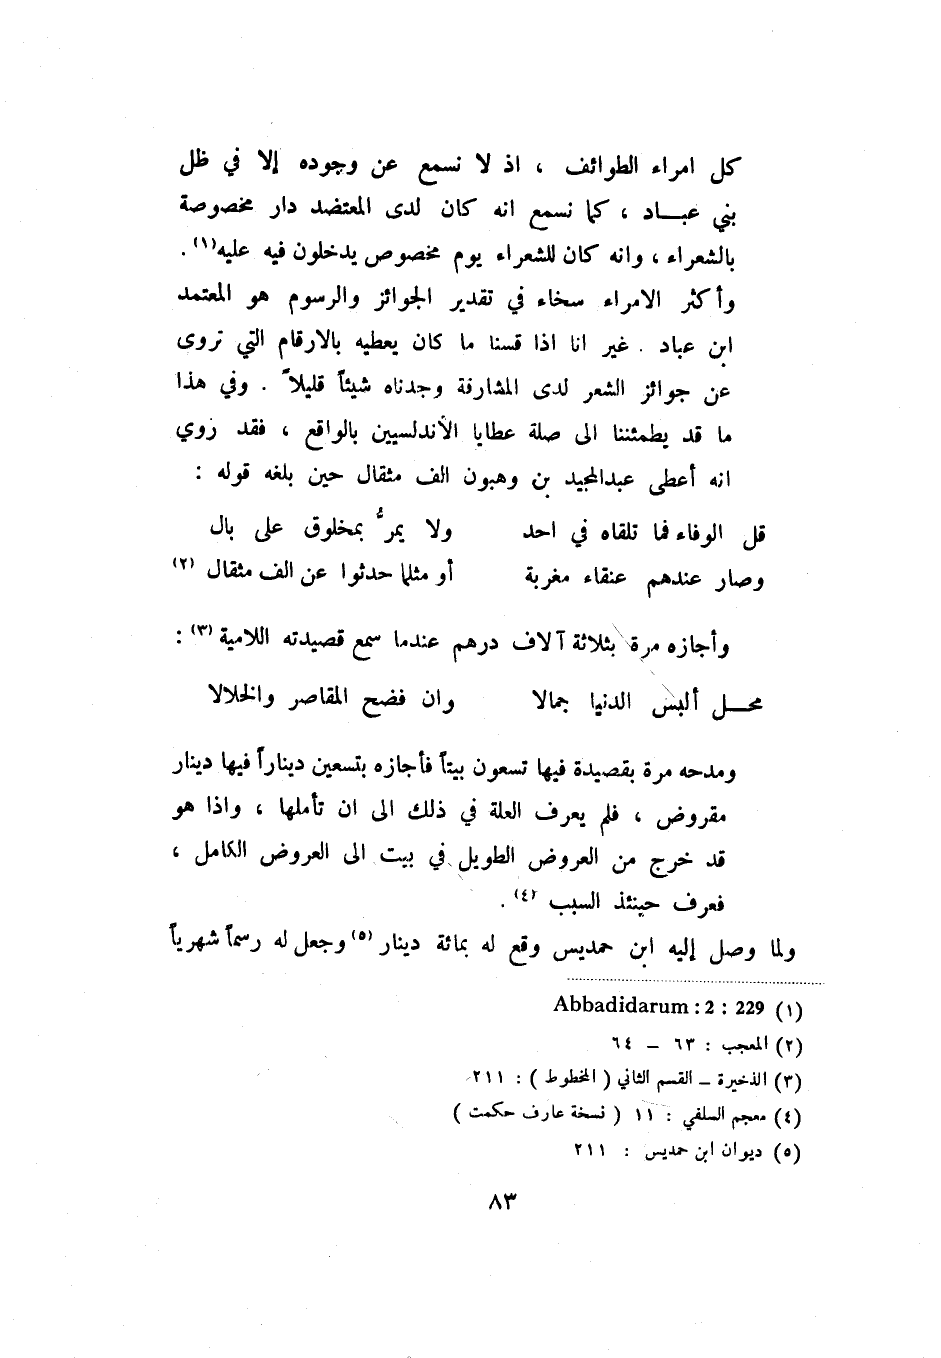 كل امراء الطوائف ، اذ لا نسمع عن وجوده إلا في ظل
بني عبـــاد ، كما نسمع انه كان لدى المعتضد دار مخصوصة
بالشعراء ، وانه كان للشعراء يوم مخصوص يدخلون فيه عليه(١) .
وأكثر الامراء سخاء في تقدير الجوائز والرسوم هو المعتمد
ابن عباد . غير انا اذا قسنا ما كان يعطيه بالارقام التي تروى
عن جوائز الشعر لدى المشارقة وجدناه شيئاً قليلاً . وفي هذا
ما قد يطمئننا الى صلة عطايا الأندلسيين بالواقع ، فقد روي
انه أعطى عبدالمجيد بن وهبون الف مثقال حين بلغه قوله :
قل الوفاء فما تلقاه في احد ولا يمرُّ بمخلوق على بال
وصار عندهم عنقاء مغربة أو مثلما حدثوا عن الف مثقال (٢)
وأجازه مرة بثلاثة آلاف درهم عندما سمع قصيدته اللامية (٣) :
محـــل ألبس الدنيا جمالا وان فضح المقاصر والخلالا
ومدحه مرة بقصيدة فيها تسعون بيتاً فأجازه بتسعين ديناراً فيها دينار
مقروض ، فلم يعرف العلة في ذلك الى ان تأملها ، واذا هو
قد خرج من العروض الطويل في بيت الى العروض الكامل ،
فعرف حينئذ السبب (٤) .
ولما وصل إليه ابن حمديس وقع له بمائة دينار (٥) وجعل له رسماً شهرياً
(١) Abbadidarum : 2 : 229
(٢) المعجب : ٦٣ – ٦٤
(٣) الذخيرة – القسم الثاني ( المخطوط ) : ٢١١
(٤) معجم السلفي : ١١ ( نسخة عارف حكمت )
(٥) ديوان ابن حمديس : ٢١١
٨٣